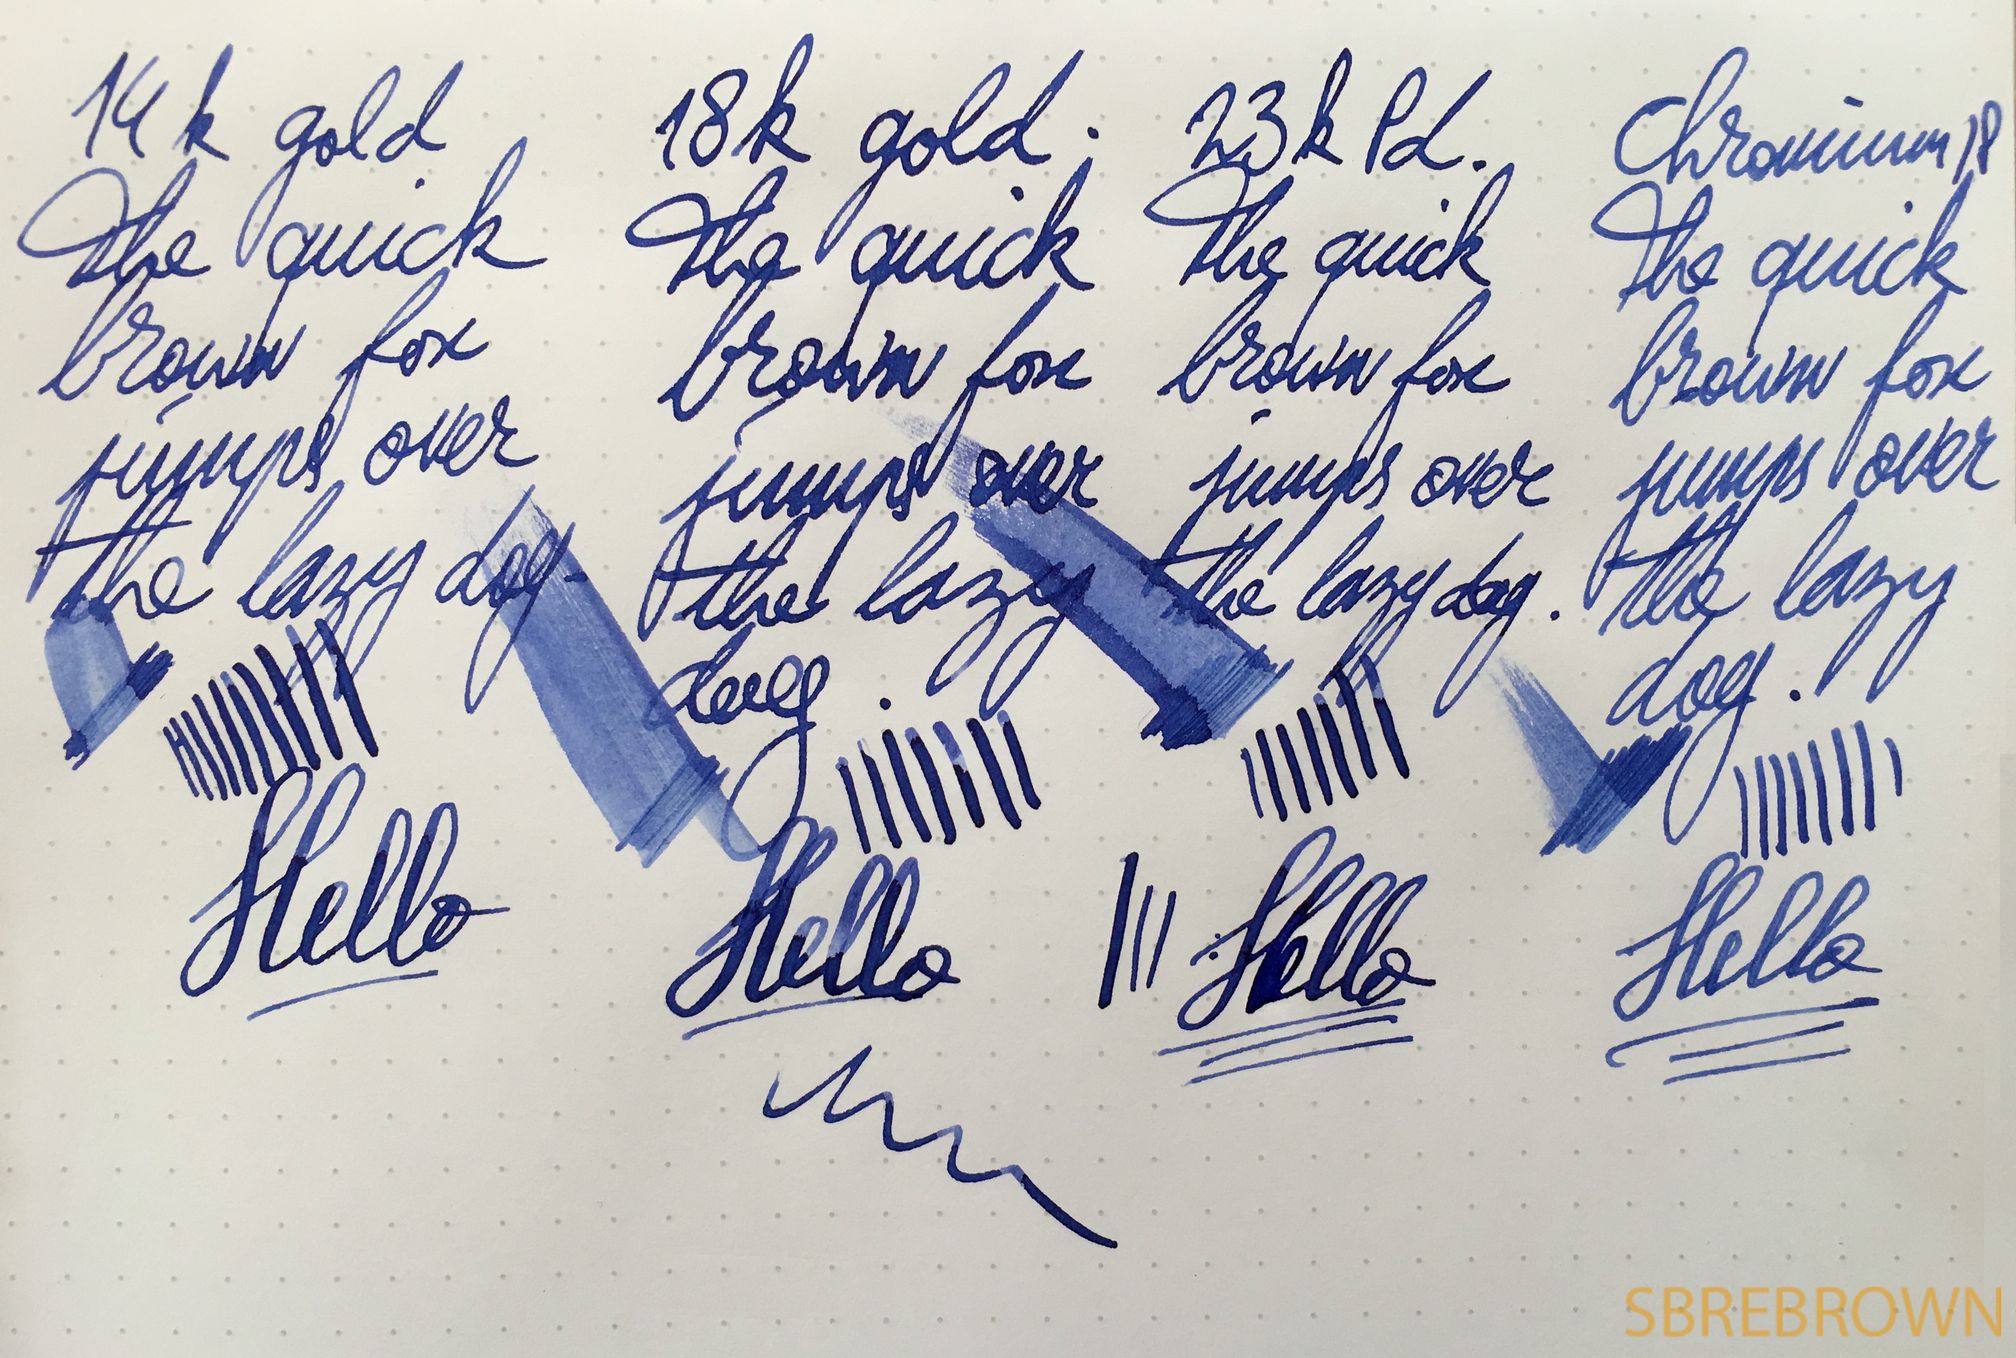 14 k gold
the quick
brown fox
jumps over
the lazy dog.
Hello
18k gold.
the quick
brown fox
jumps over
the lazy
dog.
Hello
23k Pd.
The quick
brown fox
jumps over
the lazy dog.
Hello
Chromium 18
The quick
brown fox
jumps over
the lazy
dog.
Hello
SBREBROWN